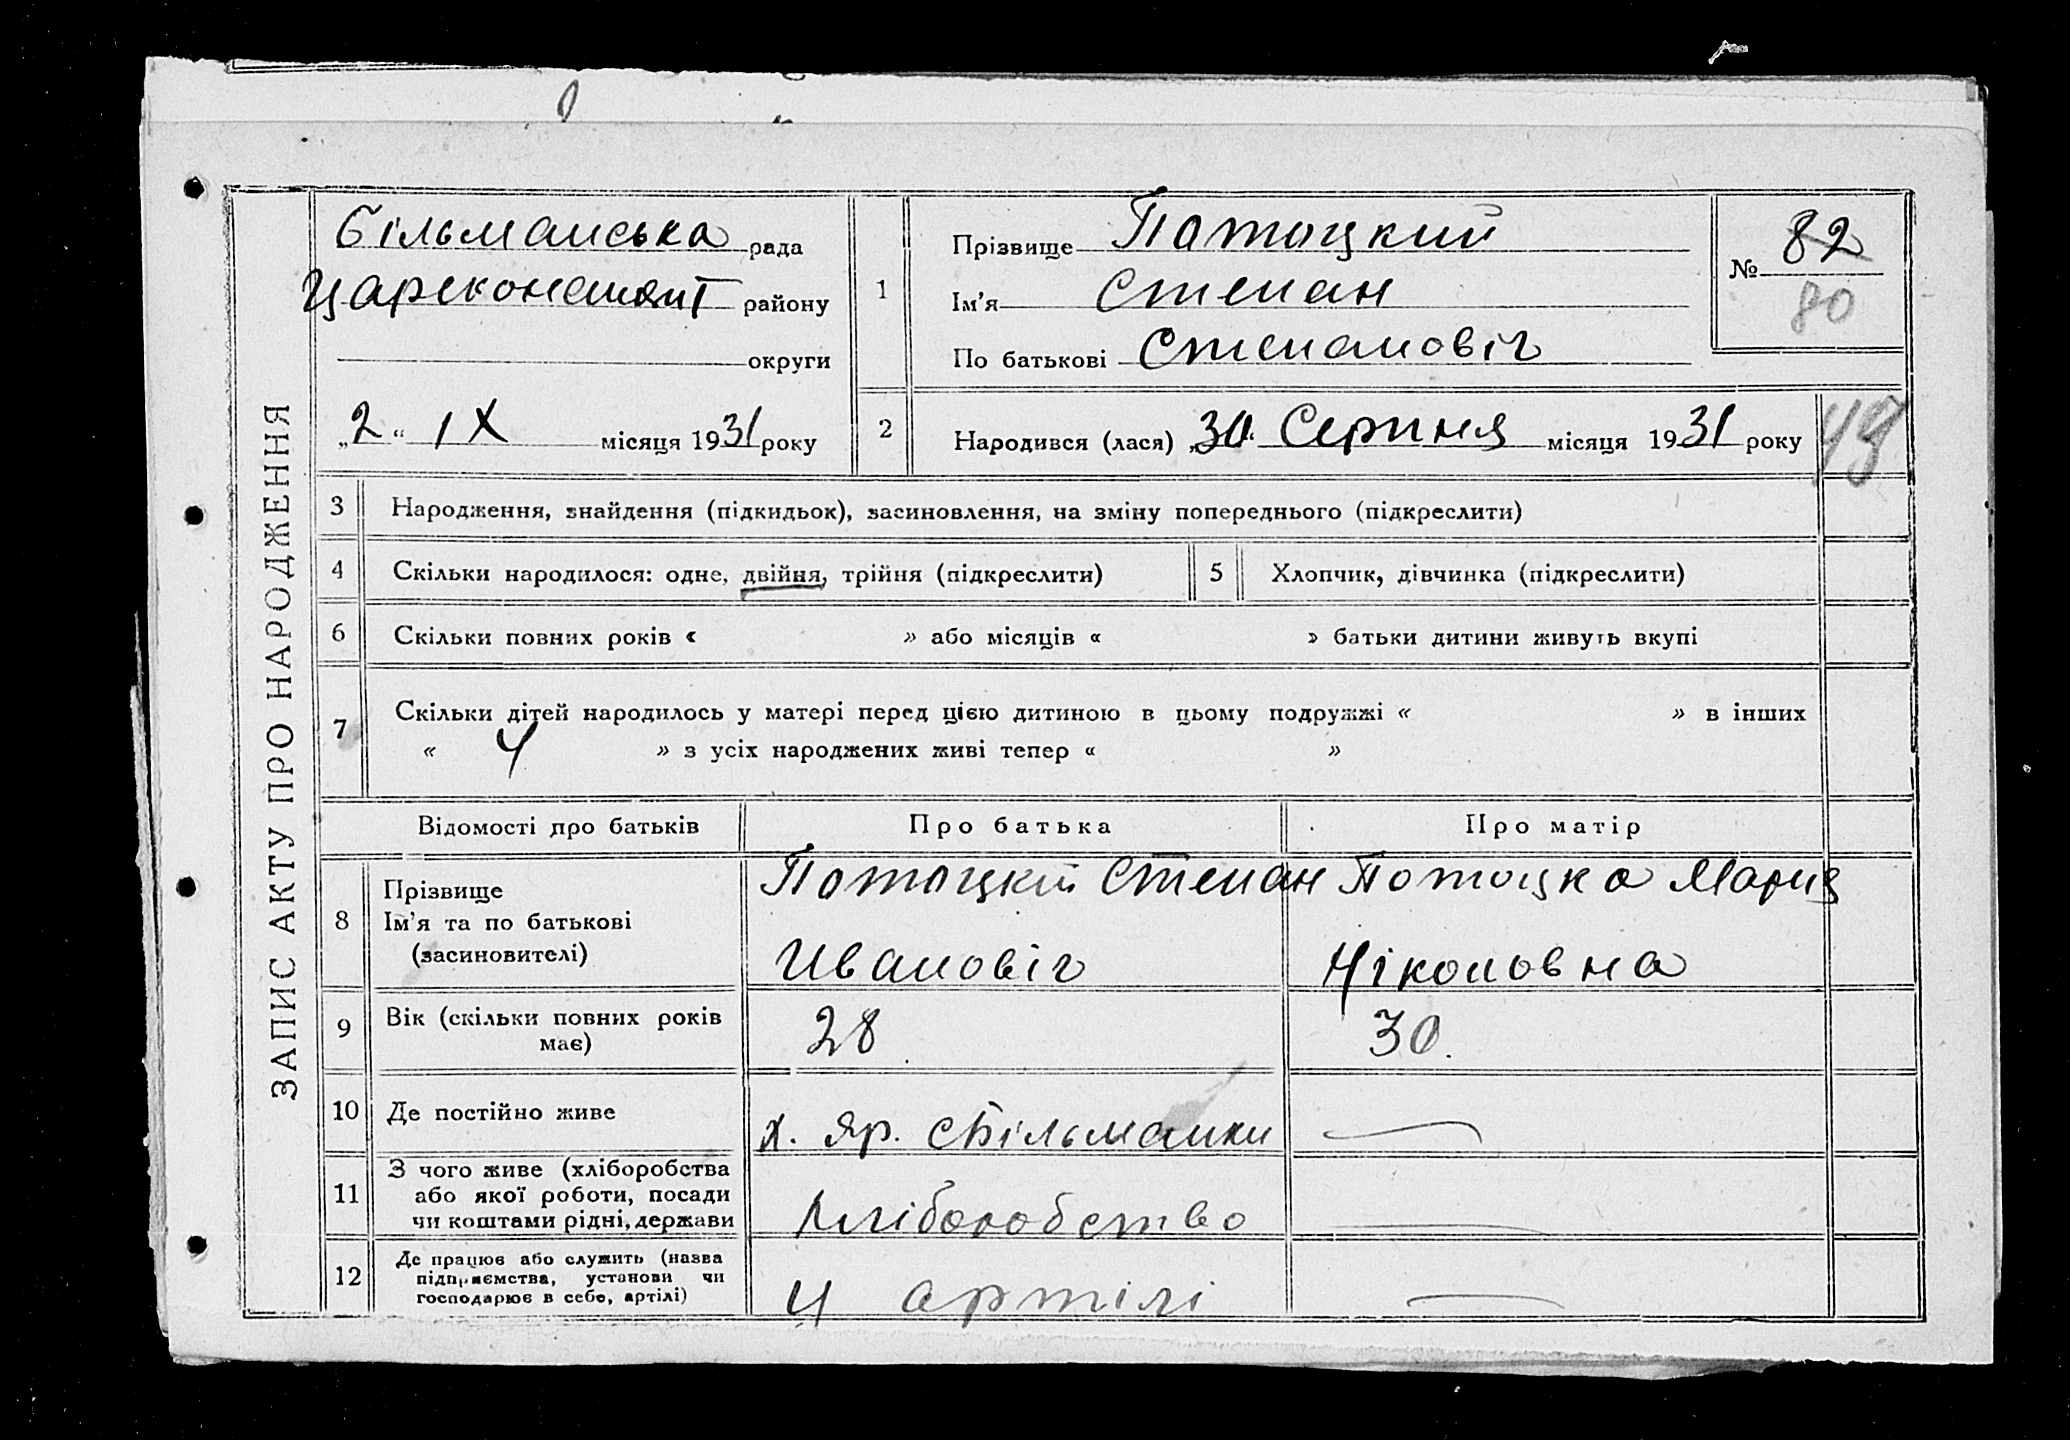 ЗАПИС АКТУ ПРО НАРОДЖЕННЯ
Більманська рада
Цареконстант району
округи
„2“ IX місяця 1931 року
1
Прізвище Потоцкий
Ім’я Степан
По батькові Степановіч
№ 82
80
2
Народився (лася) „30“ Серпня місяця 1931 року
3 Народження, знайдення (підкидьок), засиновлення, на зміну попереднього (підкреслити)
4 Скільки народилося: одне, двійня, трійня (підкреслити) 5 Хлопчик, дівчинка (підкреслити)
6 Скільки повних років « » або місяців « » батьки дитини живуть вкупі
7 Скільки дітей народилось у матері перед цією дитиною в цьому подружжі « » в інших
« 4 » з усіх народжених живі тепер « »
Відомості про батьків Про батька Про матір
8 Прізвище
Ім’я та по батькові
(засиновителі)
Потоцкий Степан
Ивановіч
Потоцка Мария
Ніколовна
9 Вік (скільки повних років
має)
28 30.
10 Де постійно живе х. Яр. Більманки
11 З чого живе (хліборобства
або якої роботи, посади
чи коштами рідні, держави
Хліборобство
12 Де працює або служить (назва
підприємства, установи чи
господарює в себе, артілі)
У артілі